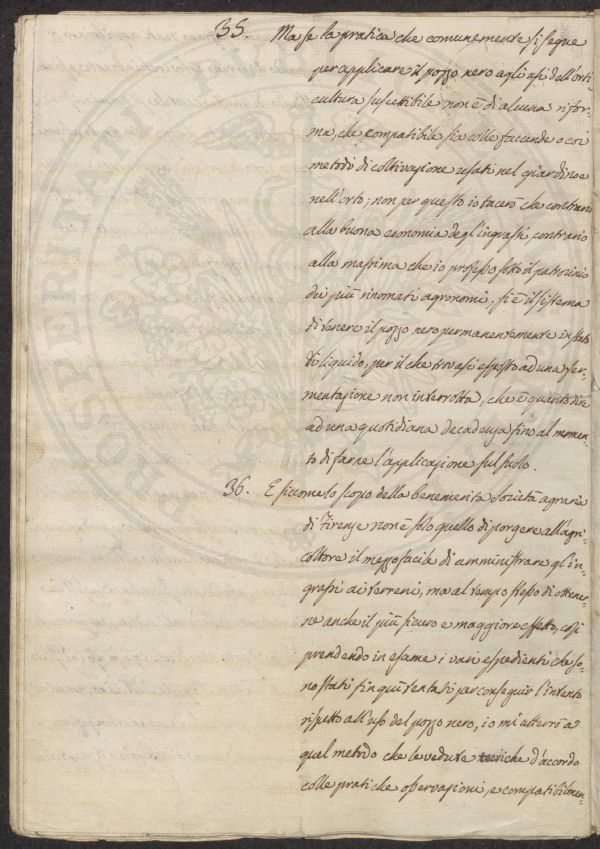 35. Ma se la pratica che comunemente si segue
per applicare il pozzo nero agli usi dell'orti
cultura suscettibile non è di alcuna rifor-
ma, che compatibile sia colle faccende o coi
metodi di coltivazione usati nel giardino e
nell'orto; non per questo io tacerò che contrario
alla buona economia degl'ingrassi, contrario
alla massima che io professo sotto il patrocinio
dei più rinomati agronomi, si è il sistema
di tenere il pozzo nero permanentemente in stato
di liquido, per il che trovasi esposto ad una fer-
mentazione non interrotta, che è quanto dire
ad una quotidiana decadenza fino al momen-
to di farne l'applicazione sul suolo.
36. E siccome lo scopo della benemerita Società agraria
di Firenze non è solo quello di porgere all'agri-
coltore il mezzo facile di amministrare gl'in-
grassi ai terreni, ma al tempo stesso di ottener-
ne anche il più sicuro e maggiore effetto, così
prendendo in esame i vari espedienti che so-
no stati fin qui tentati per conseguir l'intento
rispetto all'uso del pozzo nero, io mi atterrò a
quel metodo che le vedute teoriche d'accordo
colle pratiche osservazioni, e compatibilmen-
PROSPERITATI